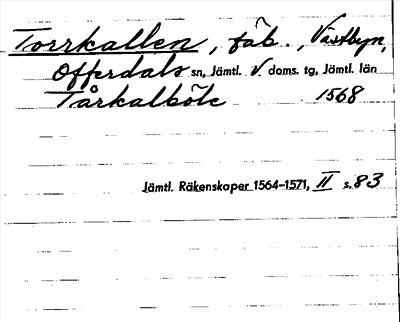 Torrkallen, fäb., Västbyn,
Offerdals sn, Jämtl. V. doms. tg, Jämtl. län
Tårkalböle 1568
Jämtl. Räkenskaper 1564-1571, II s. 83